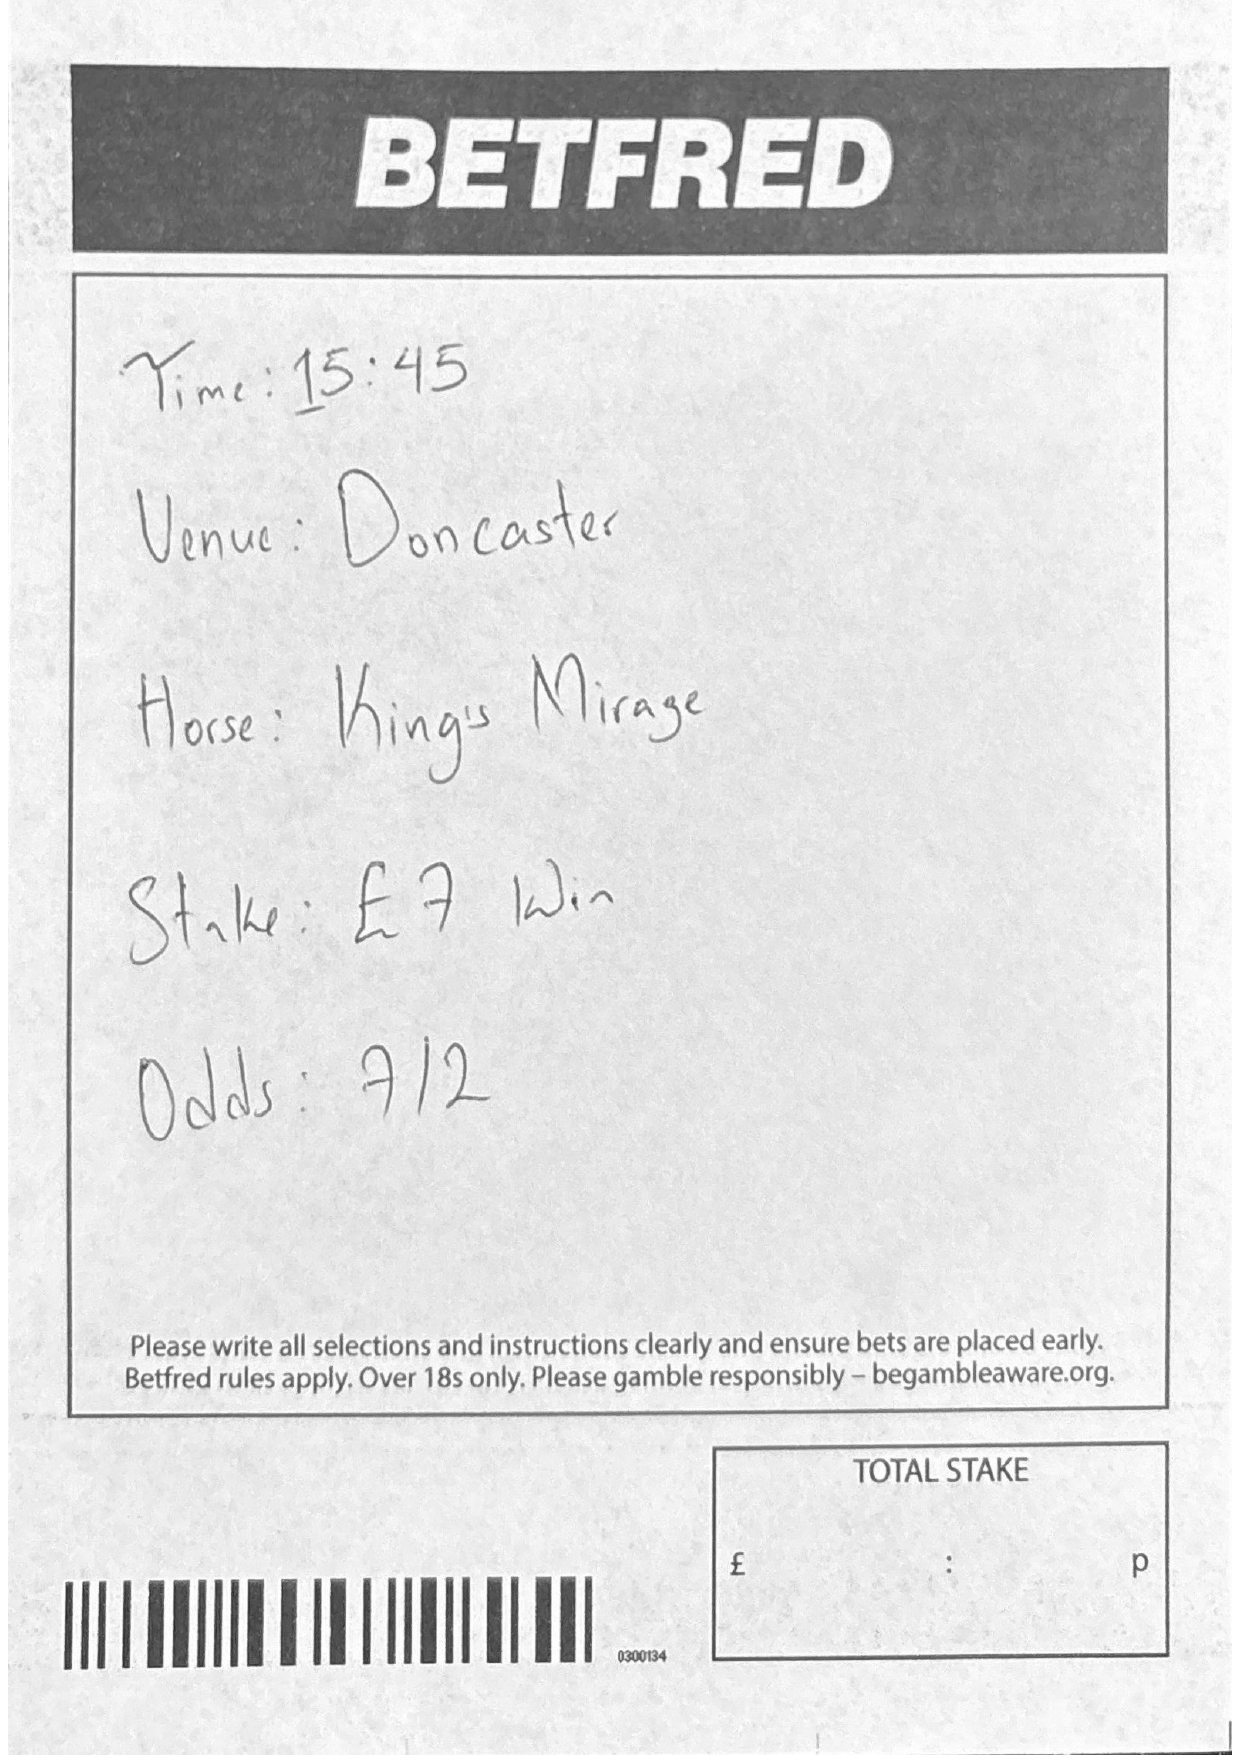 BETFRED
Time: 15:45
Venue: Doncaster
Horse: King's Mirage
Stake: £7 Win
Odds: 7/2
Please write all selections and instructions clearly and ensure bets are placed early.
Betfred rules apply. Over 18s only. Please gamble responsibly – begambleaware.org.
TOTAL STAKE
£ : p
0300134